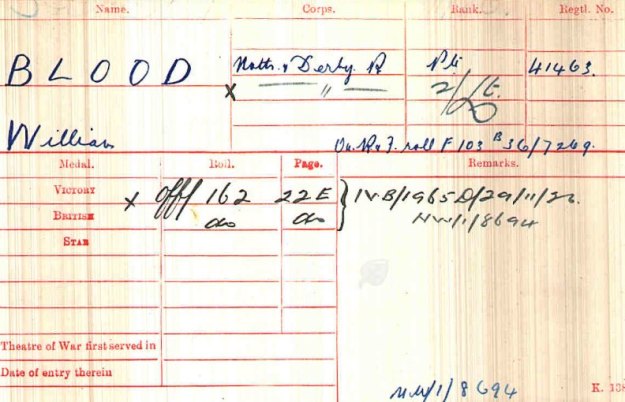 Name. Corps. Rank. Regtl. No.
BLOOD Notts. & Derby. R Pte 41463.
X " 2/Lt.
William On. R. F. roll F 103 B 36/7269.
Medal. Roll. Page. Remarks.
VICTORY X Off/162 22E } IVB/1965D/29/11/26.
BRITISH do do NW/1/8694
STAR
Theatre of War first served in
Date of entry therein
NW/1/8694 K. 138